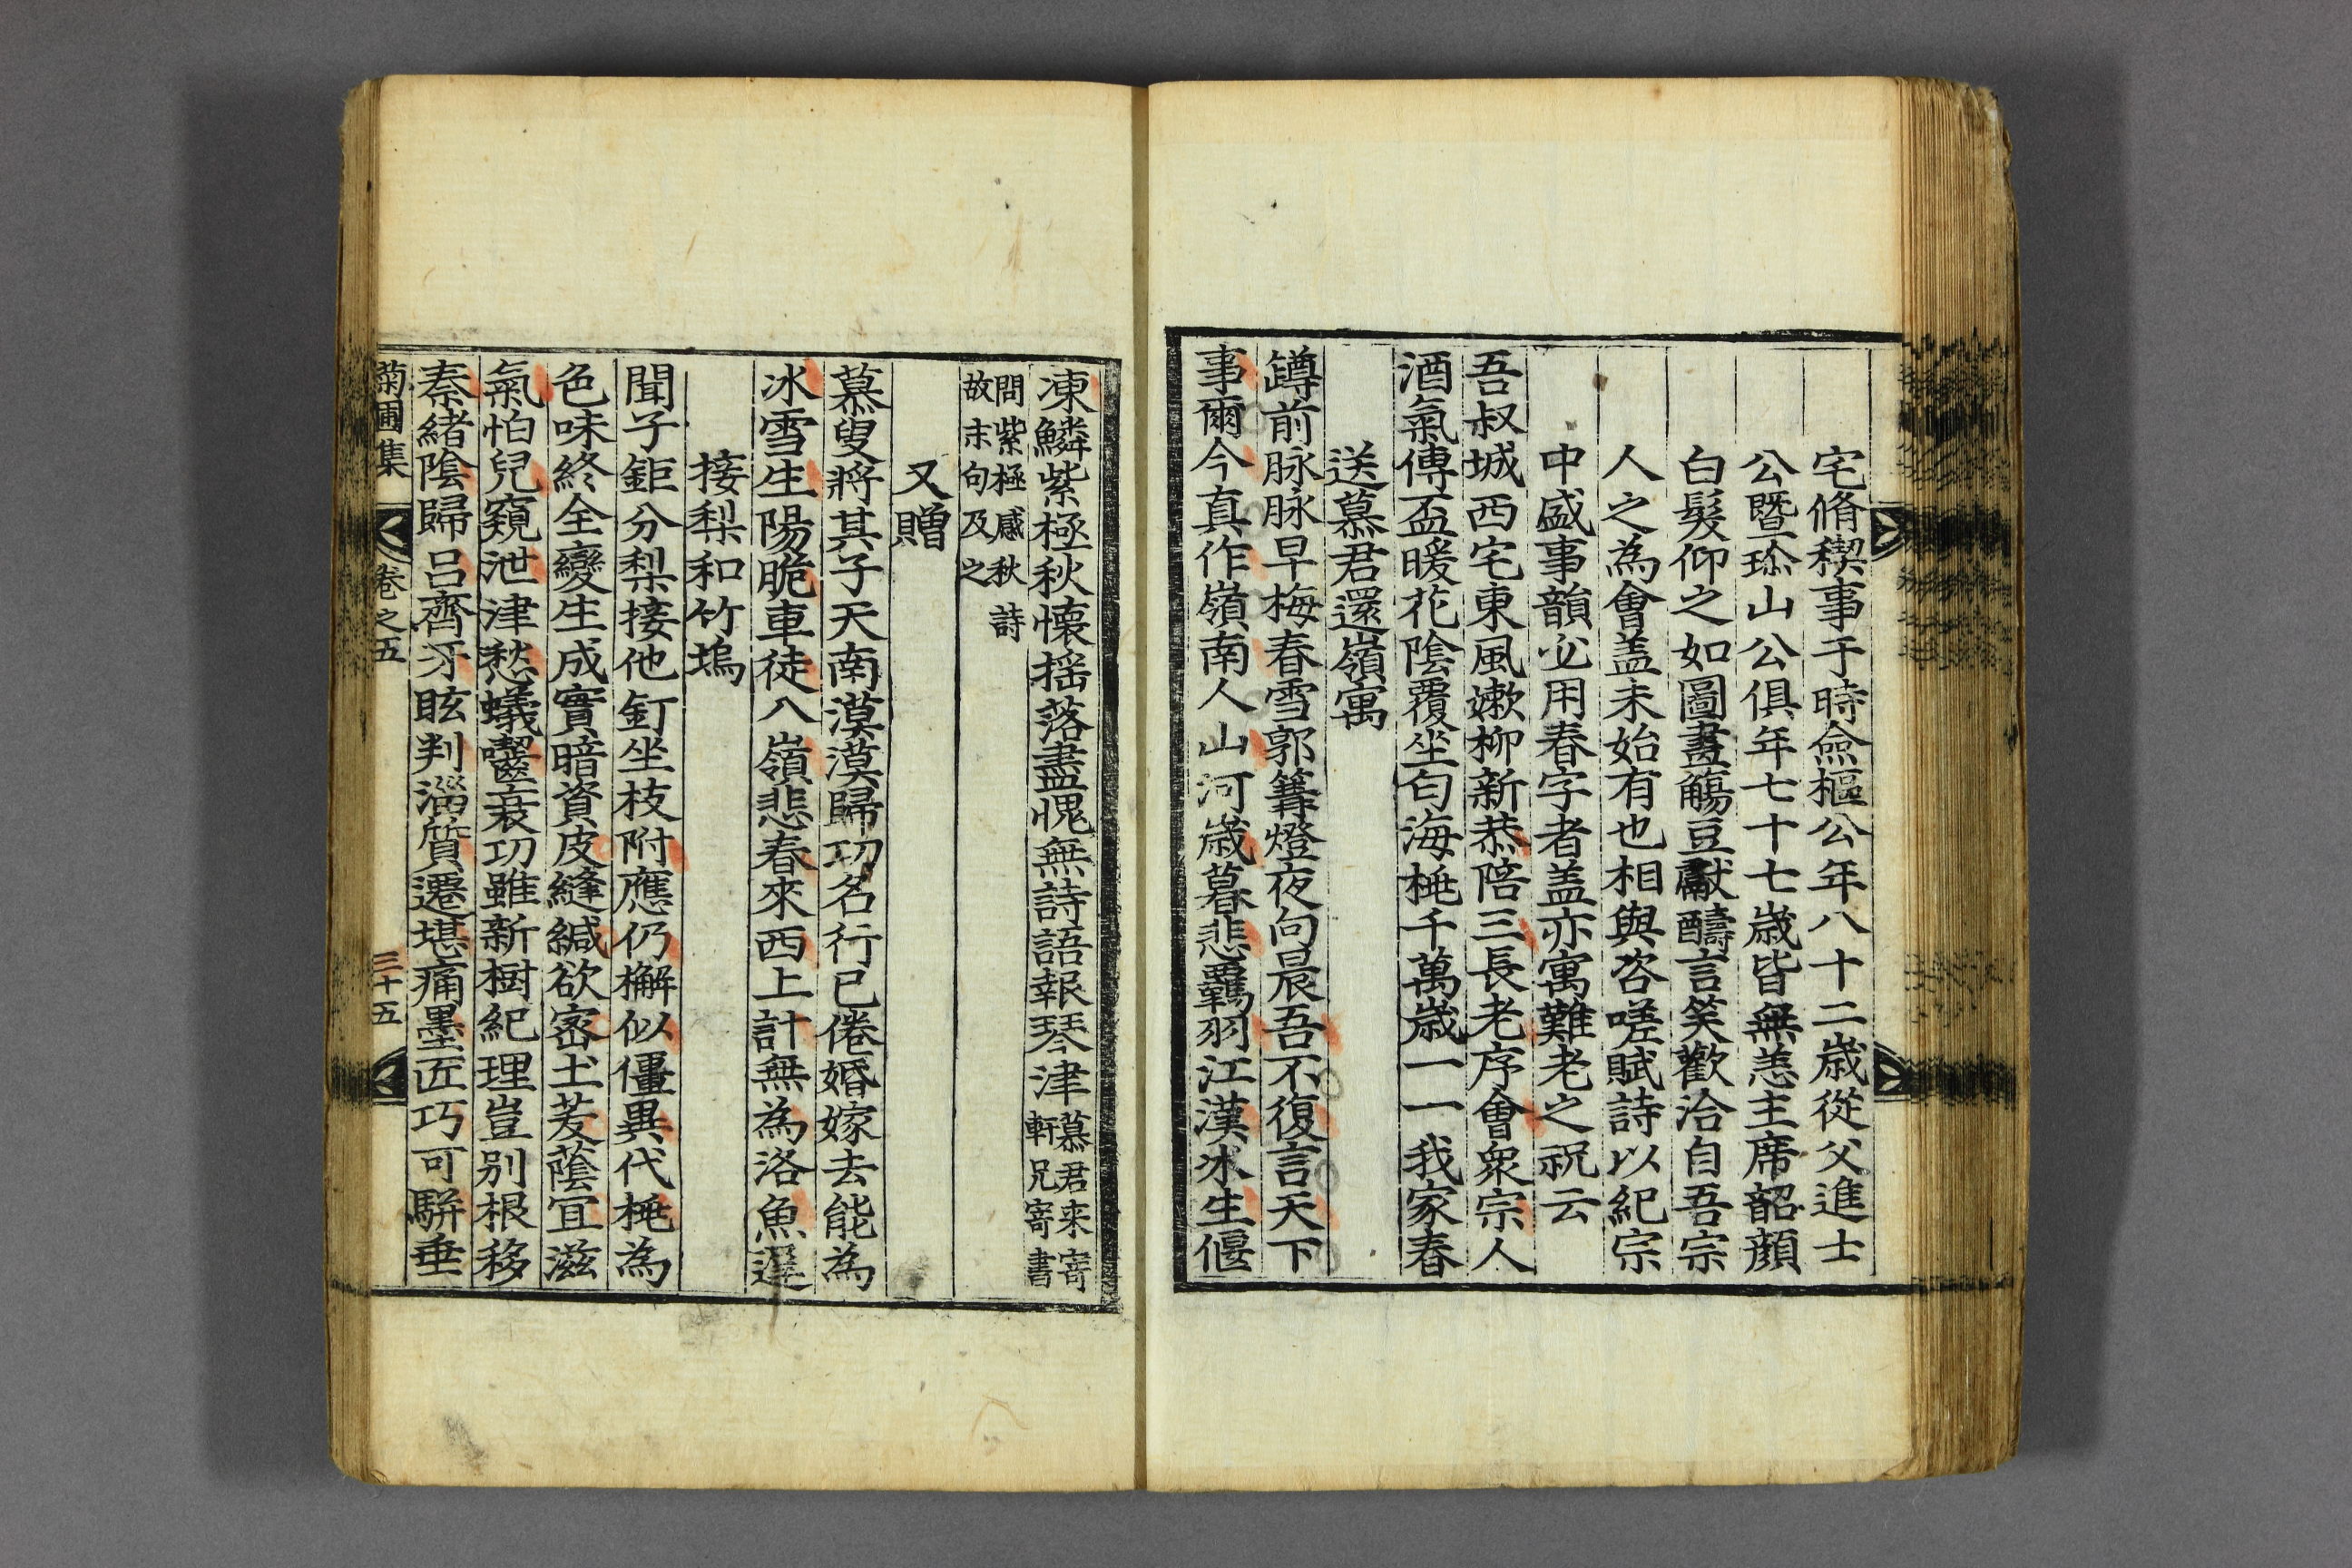 宅脩稧事于時僉樞公年八十二歲從父進士
公曁珎山公俱年七十七歲皆無恙主席韶顔
白髮仰之如圖畫觴豆獻酬言笑歡洽自吾宗
人之為會盖未始有也相與咨嗟賦詩以紀宗
中盛事韻必用春字者盖亦寓難老之祝云
吾叔城西宅東風嫰柳新恭陪三長老序會衆宗人
酒氣傳盃暖花陰覆坐匀海桃千萬歲一一我家春
送慕君還嶺寓
罇前脉脉早梅春雪郭篝燈夜向晨吾不復言天下
事爾今真作嶺南人山河歲暮悲羈羽江漢氷生偃
凍鱗紫極秋懐揺落盡愧無詩語報琴津慕君来寄
軒兄寄書
問紫極感秋詩
故末句及之
又贈
慕叟將其子天南漠漠歸功名行已倦婚嫁去能為
冰雪生陽脆車徒八嶺悲春來西上計無為洛魚遲
接梨和竹塢
聞子鉅分梨接他釘坐枝附應仍檞似僵異代桃為
色味終全變生成實暗資皮縫緘欲宻土茇蔭宜滋
氣怕兒窺泄津愁蟻囓衰功雖新樹紀理豈别根移
秦緒陰歸呂齊牙眩判淄質遷堪痛墨匠巧可騈垂
菊圃集 卷之五 三十五